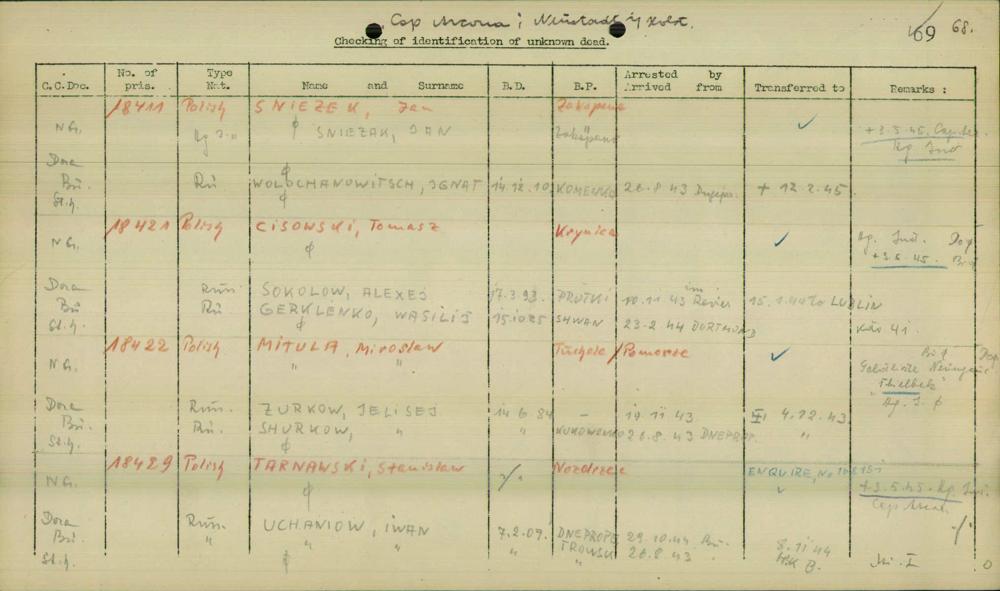 Cap Arcona i Neustadt i/ Holst.
69 68.
Checking of identification of unknown dead.
C.C.Doc. No. of pris. Type Nat. Name and Surname B.D. B.P. Arrested by Arrived from Transferred to Remarks :
18411 Polish SNIEZEK, Jan Zakopane ✓
NG. SNIEZAK, JAN Zakopane +3.5.45. Cap Ar.
Dora
Bu. Ru WOLOCHANOWITSCH, IGNAT 14.12.10 KOMENKO 26.8 43 + 12.2.45.
St.g.
18421 Polish CISOWSKI, Tomasz Krynica ✓
NG. +3.5.45.
Dora Russ. SOKOLOW, ALEXEJ 17.3.93. PRUTKI 10.11 43 Revier 15.1.44 to LUBLIN
Bu Ru GERKLENKO, WASILIJ 15.10 25 SHWAN 23.2 44 DORTMUND
St.g.
18422 Polish MITULA, Miroslaw Tuchola / Pomorze ✓
NG. " " "Thielbek"
Dora Russ. ZURKOW, JELISEJ 14 6 84 - 19 11 43 4.12.43
Bu. Ru. SHURKOW, " " KUKOWENKO 26.8.43 DNEPROP. "
St.g.
18429 Polish TARNAWSKI, Stanislaw Nozdrzec ENQUIRE, No
NG. +3.5.45.
Cap Arcona
Dora Russ. UCHANIOW, IWAN 7.2.09. DNEPROPE 29.10.44 Bu. 8.11 44
Bu. " " " " TROWSK 26.8 43
St.g. "